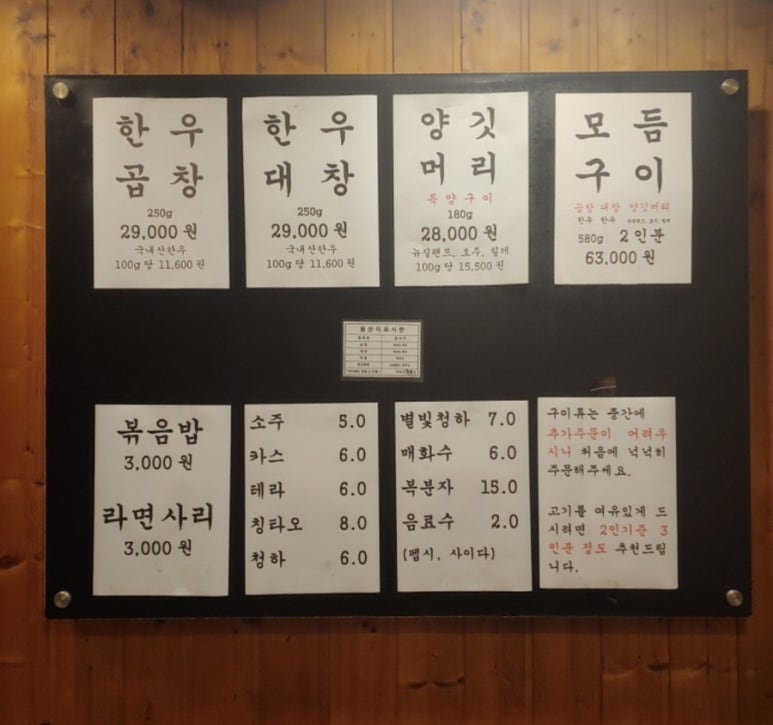 한우
곱창
250g
29,000 원
국내산한우
100g 당 11,600 원
한우
대창
250g
29,000 원
국내산한우
100g 당 11,600 원
양깃
머리
특양구이
180g
28,000 원
뉴질랜드, 호주, 칠레
100g 당 15,500 원
모듬
구이
곱창 대창 양깃머리
한우 한우 뉴질랜드, 호주, 칠레
580g 2 인분
63,000 원
원산지표시판
볶음밥
3,000 원
라면사리
3,000 원
소주 5.0
카스 6.0
테라 6.0
칭타오 8.0
청하 6.0
별빛청하 7.0
매화수 6.0
복분자 15.0
음료수 2.0
(펩시, 사이다)
구이류는 중간에
추가주문이 어려우
시니 처음에 넉넉히
주문해주세요.
고기를 여유있게 드
시려면 2인기준 3
인분 정도 추천드립
니다.